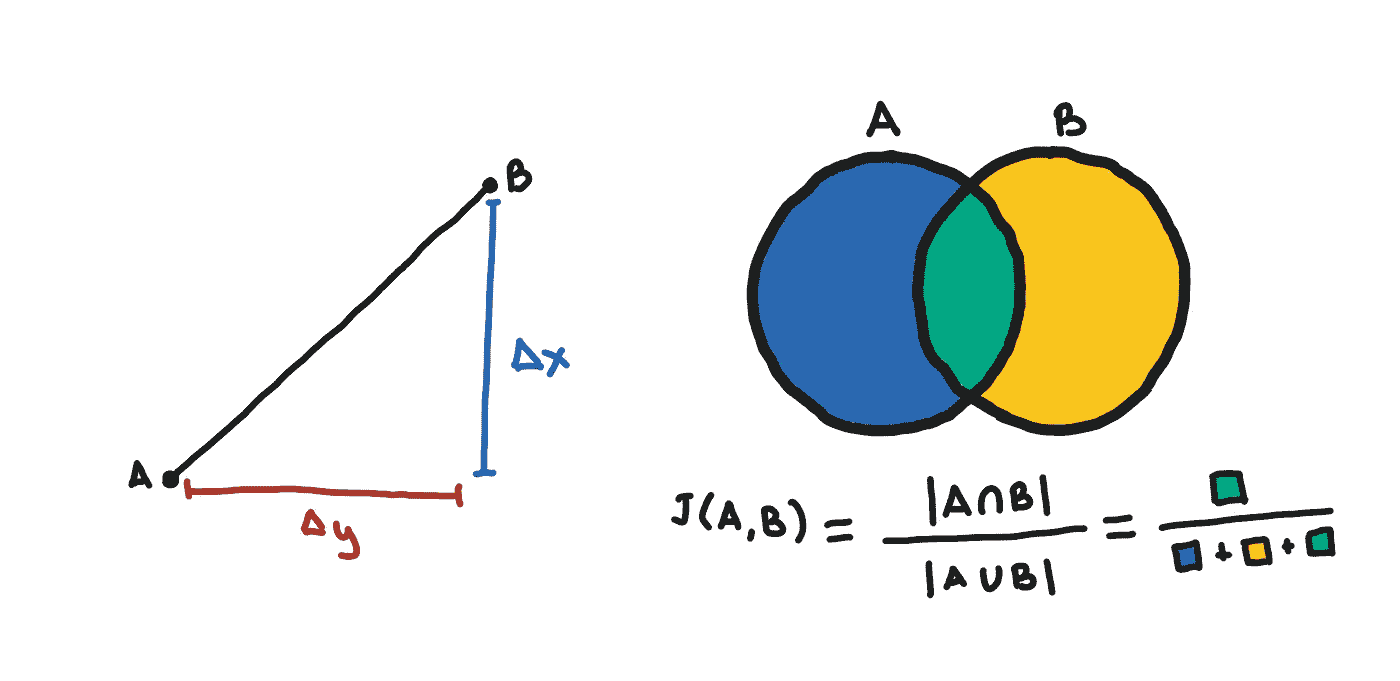 B
A
Δx
Δy
A B
J(A,B) = |A∩B| / |A∪B| = / + +